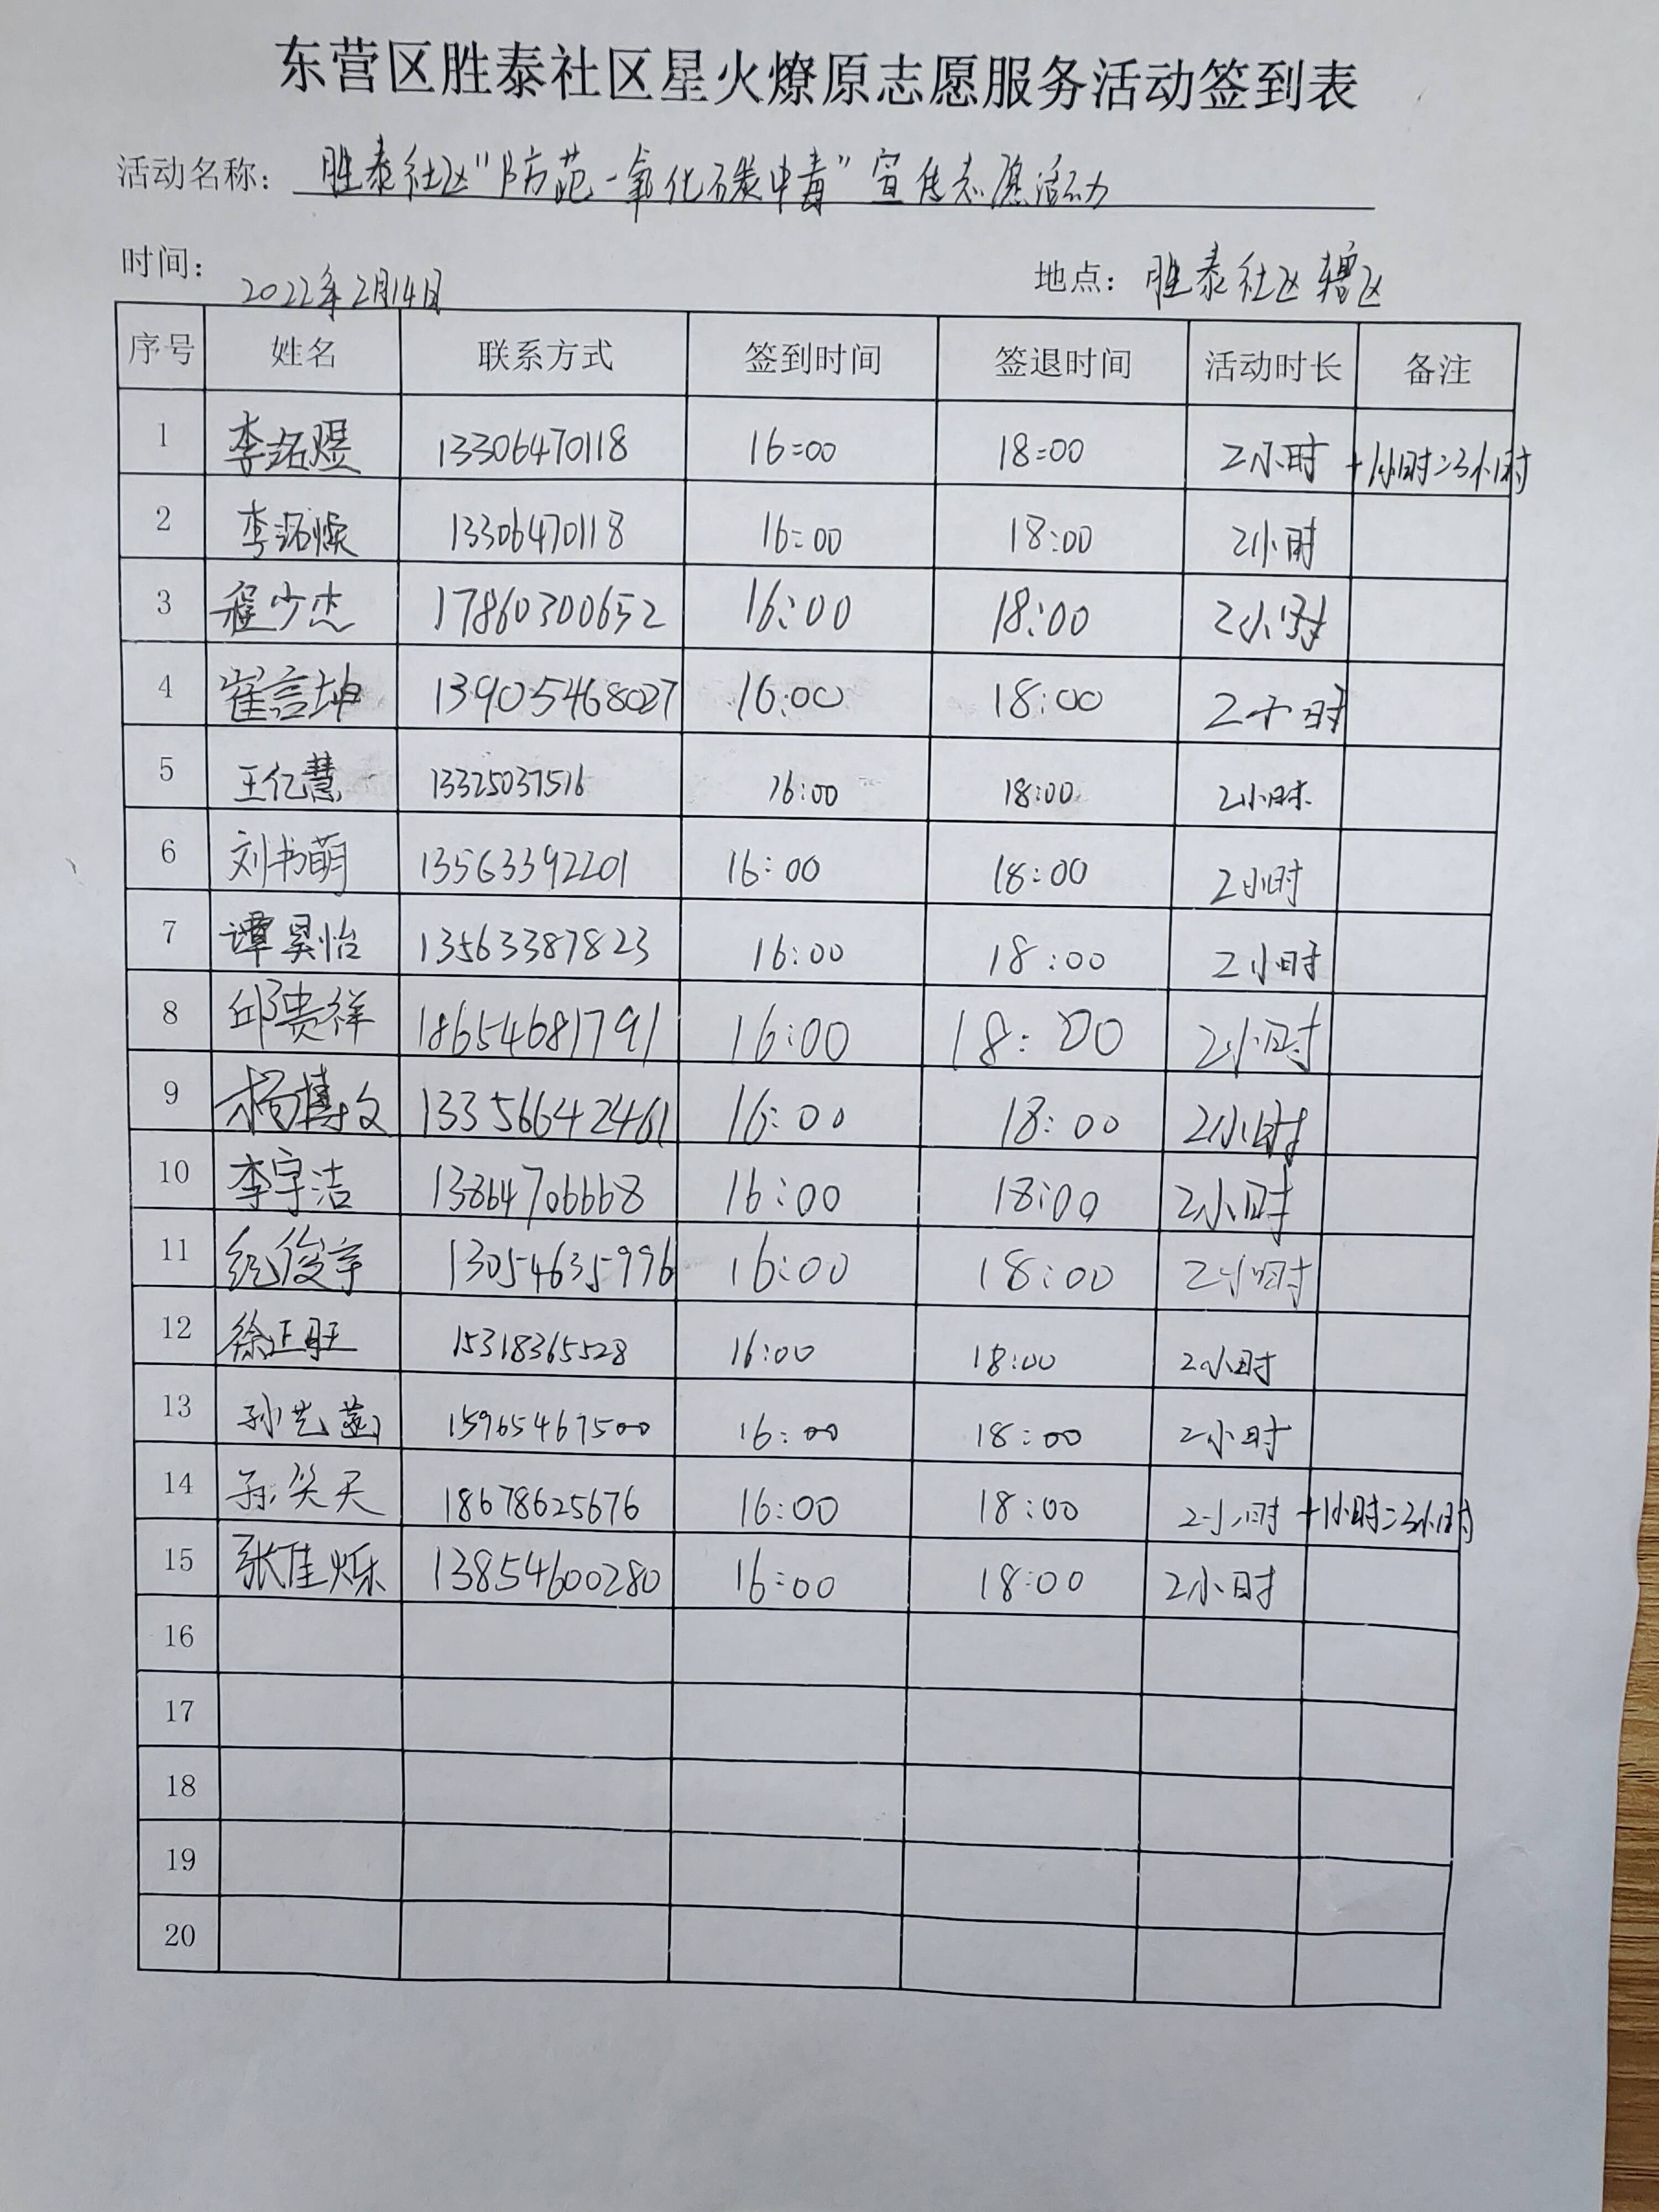 东营区胜泰社区星火燎原志愿服务活动签到表
活动名称：胜泰社区“防范一氧化碳中毒”宣传志愿活动
时间：2022年2月14日 地点：胜泰社区辖区
序号 姓名 联系方式 签到时间 签退时间 活动时长 备注
1 李沰煜 13306470118 16:00 18:00 2小时 +1小时=3小时
2 李沰燦 13306470118 16:00 18:00 2小时
3 程少杰 17860300652 16:00 18:00 2小时
4 崔言坤 13905468027 16:00 18:00 2小时
5 王亿慧 13325037516 16:00 18:00 2小时
6 刘书萌 13563392201 16:00 18:00 2小时
7 谭昊怡 13563387823 16:00 18:00 2小时
8 邱贵祥 18654681791 16:00 18:00 2小时
9 杨博文 13356642461 16:00 18:00 2小时
10 李宇洁 13864706668 16:00 18:00 2小时
11 纪俊宇 13054635996 16:00 18:00 2小时
12 徐正旺 15318365528 16:00 18:00 2小时
13 孙艺菡 15965467500 16:00 18:00 2小时
14 孙笑天 18678625676 16:00 18:00 2小时 +1小时=3小时
15 张佳烁 13854600280 16:00 18:00 2小时
16
17
18
19
20